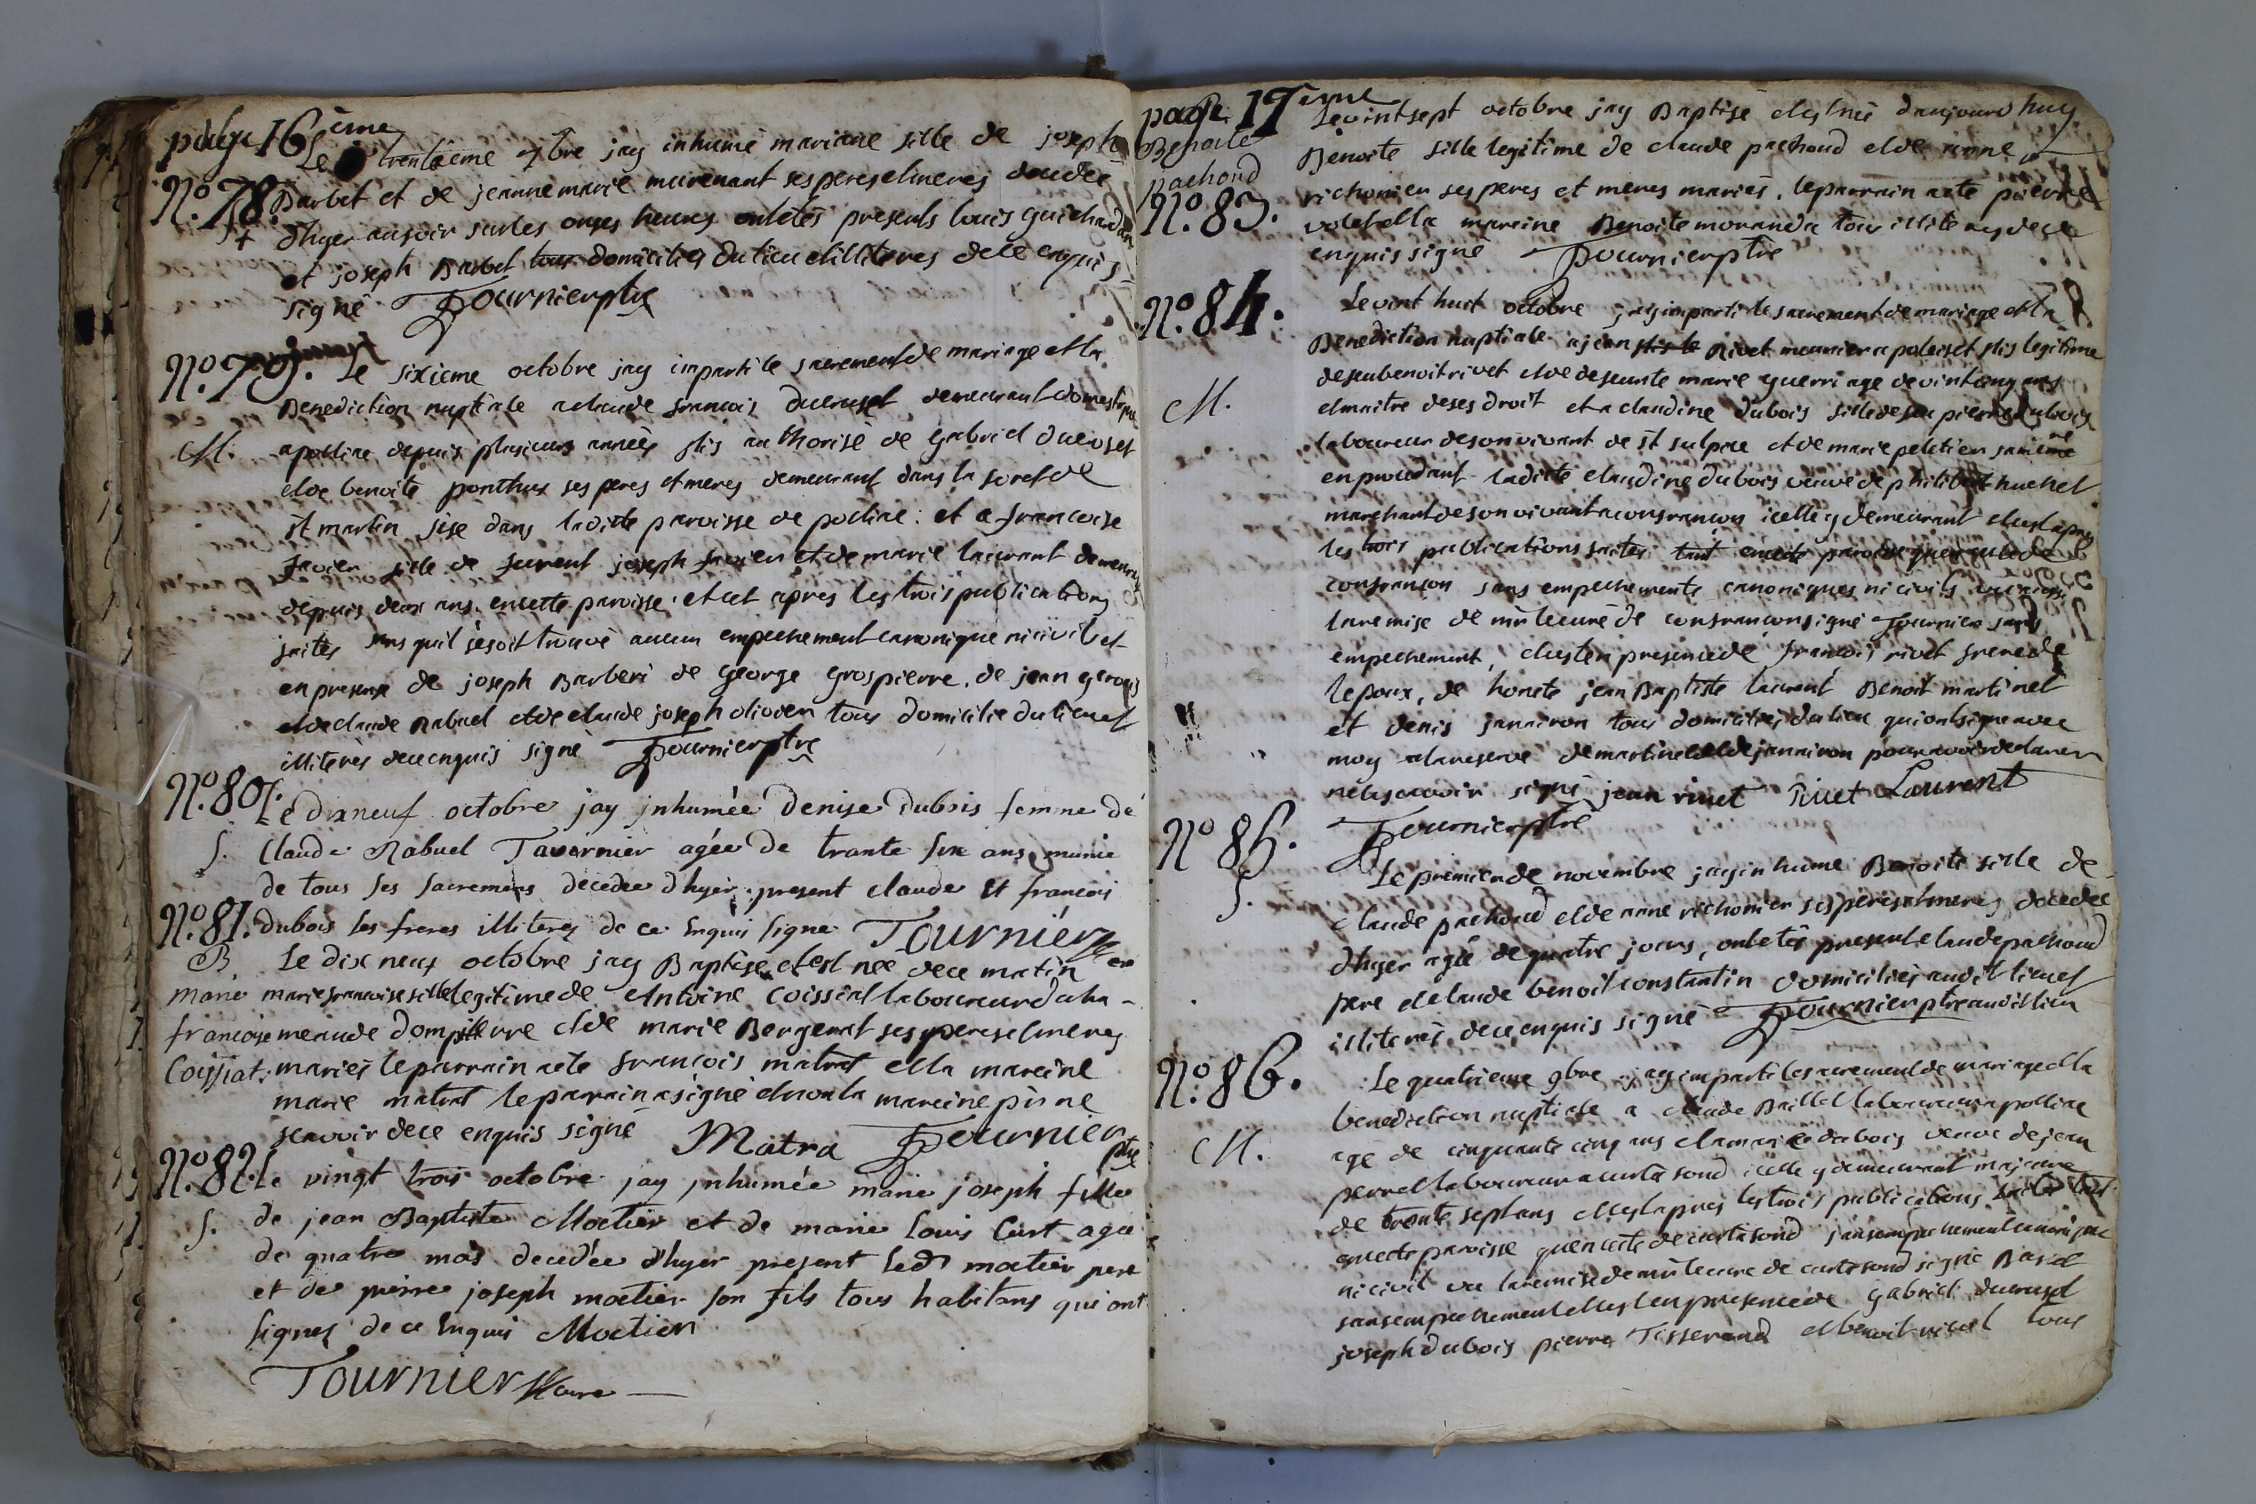 page 16ème
Le trentième 7bre jay inhumé mariane fille de joseph
N.º 78. Barbet et de jeanne marie ses peres et meres decedée
S+ dhyer au soir sur les onzes heures ont étés presents louis guichardan
et joseph Barbet tous domiciliés du lieu et illiteres de ce enquis
signé Tournier ptre
N.º 79. Le sixieme octobre jay imparti le sacrement de mariage et la
Benediction nuptiale a claude francois ducruset demeurant domestique
M. apolliac depuis plusieurs années fils authorisé de gabriel ducruset
et de benoite ponthus ses peres et meres demeurant dans la foret de
st martin size dans la ditte paroisse de polliac. et a francoise
favier fille de joseph favier et de marie laurant demeurant
depuis deux ans en cette paroisse. et cet après les trois publications
faites sans quil se soit trouvé aucun empechement canonique ni civil et
en presence de joseph Barberi de george grospierre, de jean
et de claude Rabuel et de claude joseph olivier tous domicilie du lieu et
illiterès de ce enquis signé Tournier ptre
N.º 80. Le dixneuf octobre jay jnhumée denise dubois femme de
S. claude Rabuel Tavernier agée de trante six ans munie
de tous ses sacremens decedée dhyer. present claude et francois
N.º 81. dubois ses freres illiteres de ce enquis signe Tournier
B. Le dix neuf octobre jay Baptisé et est née de ce matin
marie marie francoise fille legitime de Antoine coissiat laboureur du ha-
francoise meau de dompierre et de marie Bergerat ses peres et meres
Coissiat. mariés le parrain a ete francois matrat et la mareine
marie matrat le parrain a signé et non la mareine p.r ne
scavoir de ce enquis signé Matra Tournier ptre
N.º 82. Le vingt trois octobre jay jnhumée marie joseph fille
S. de jean Baptiste Moctier et de marie louis Curt agée
de quatre mois decedée d'hyer present led. moctier pere
et de pierre joseph moctier son fils tous habitans qui ont
signez de ce Enquis Moctier
Tournier

page 17ème
Benoite Le vint sept octobre jay Baptisé et est née daujourd huy
pachoud Benoite fille legitime de claude pachoud et de anne
N.º 83. richonier ses peres et meres mariés. le parrain a ete pierre
volet et la mareine Benoite morand tous illiteres de ce
enquis signé Tournier ptre
N.º 84. Le vint huit octobre jay imparti le sacrement de mariage et la
Benediction nuptiale a jean Rivet meunier a poleiset fils legitime
de feu benoit rivet et de defeunte marie guerri age de vint cinq ans
M. et maitre de ses droit et a claudine dubois fille de feu pierre dubois
laboureur de son vivant de st sulpice et de marie peletier sa mère
en procedant ladite claudine dubois veuve de philibert huchet
marchant de son vivant a confrancon icelle y demeurant et cest après
les trois publications faites tant en cette paroisse quen celle de
confrancon sans empechements canoniques ni civils
la remise de mr le curé de confrancon signé Tournier sans
empechement, et cest en presence de francois rivet frere de
lepoux, de honete jean Baptiste laurent Benoit martinet
et denis janairon tous domicilies du lieu qui ont signe avec
moy a la reserve de martinet et de janairon pour avoir declarer
ne le scavoir signé jean rivet Rivet Laurent
Tournier ptre
N.º 85. Le premier de novembre jay inhumé Benoite fille de
S. claude pachoud et de anne richonier ses peres et meres decedée
dhyer agée de quatre jours, ont etés present claude pachoud
pere et claude benoit constantin domiciliés audit lieu et
illiterès de ce enquis signé Tournier ptre audit lieu
N.º 86. Le quatrieme 9bre jay imparti le sacrement de mariage et la
benediction nuptiale a claude Baillet laboureur a polliac
M. age de cinquante cinq ans et a marie dubois veuve de jean
perret laboureur a curtafond icelle y demeurant majeure
de trente sept ans et cest après les trois publications faites tant
en cette paroisse quen cette de curtafond sans empechement canonique
ni civil vu la remise de mr le cure de curtafond signé
sans empechement et cest en presence de gabriel ducruset
joseph dubois pierre Tisserand et benoit rivet tous